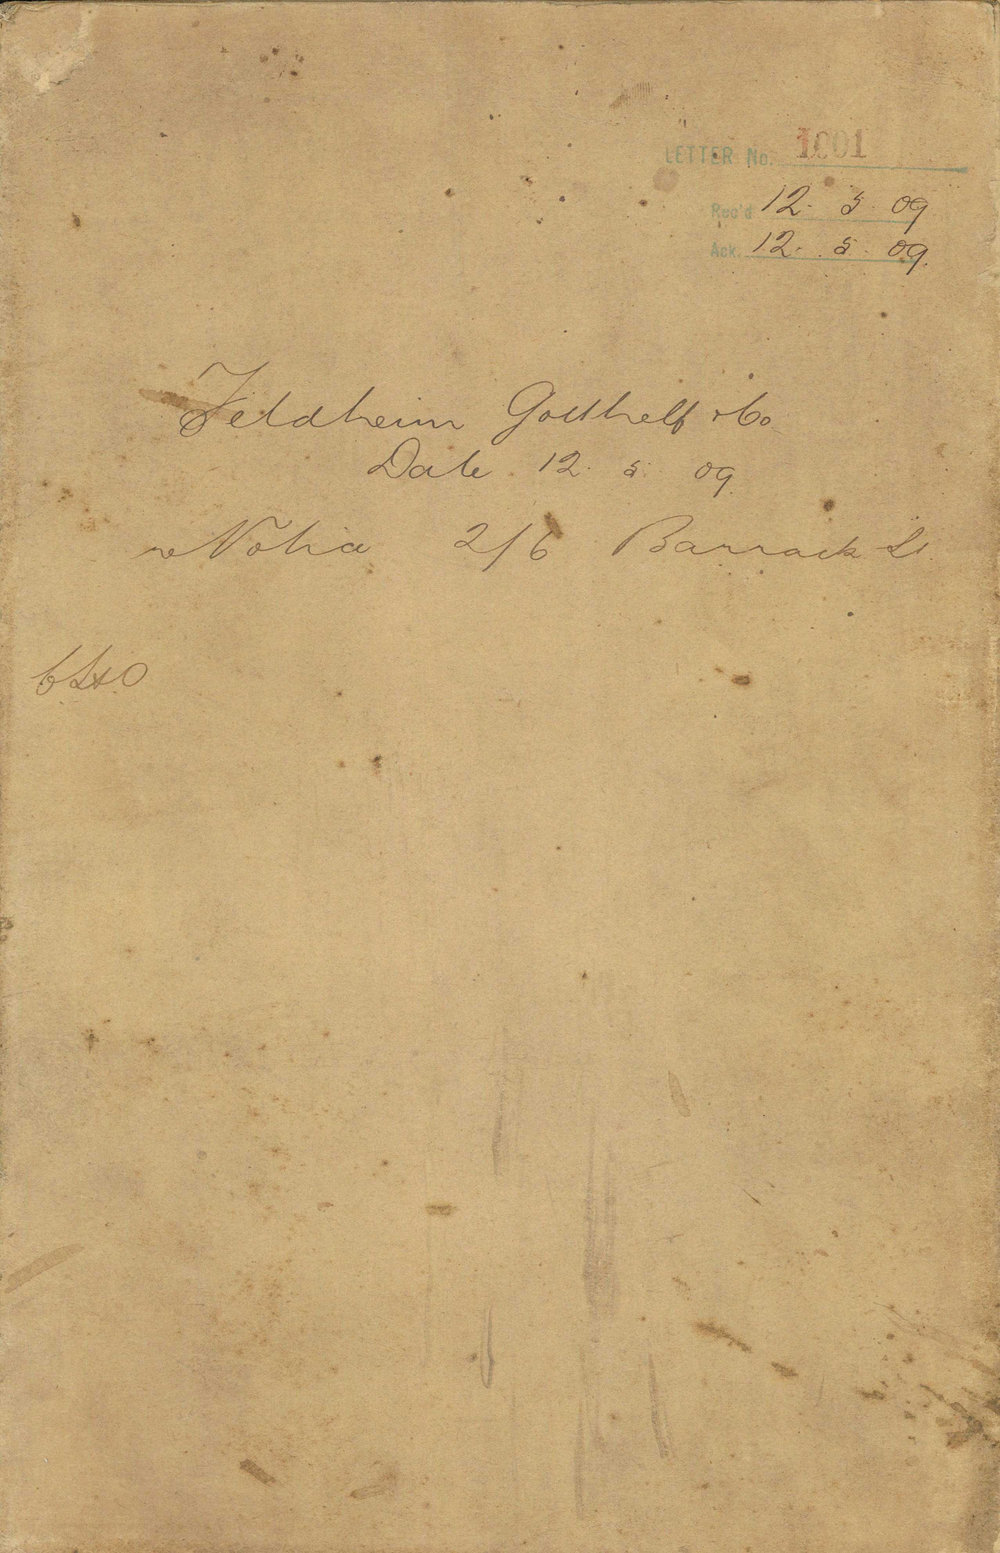 LETTER No. 1001
Rec'd 12. 5. 09
Ack. 12. 5. 09.
Feldheim Gotthelf & Co.
Date 12. 5. 09.
re 2/6 Barrack St.